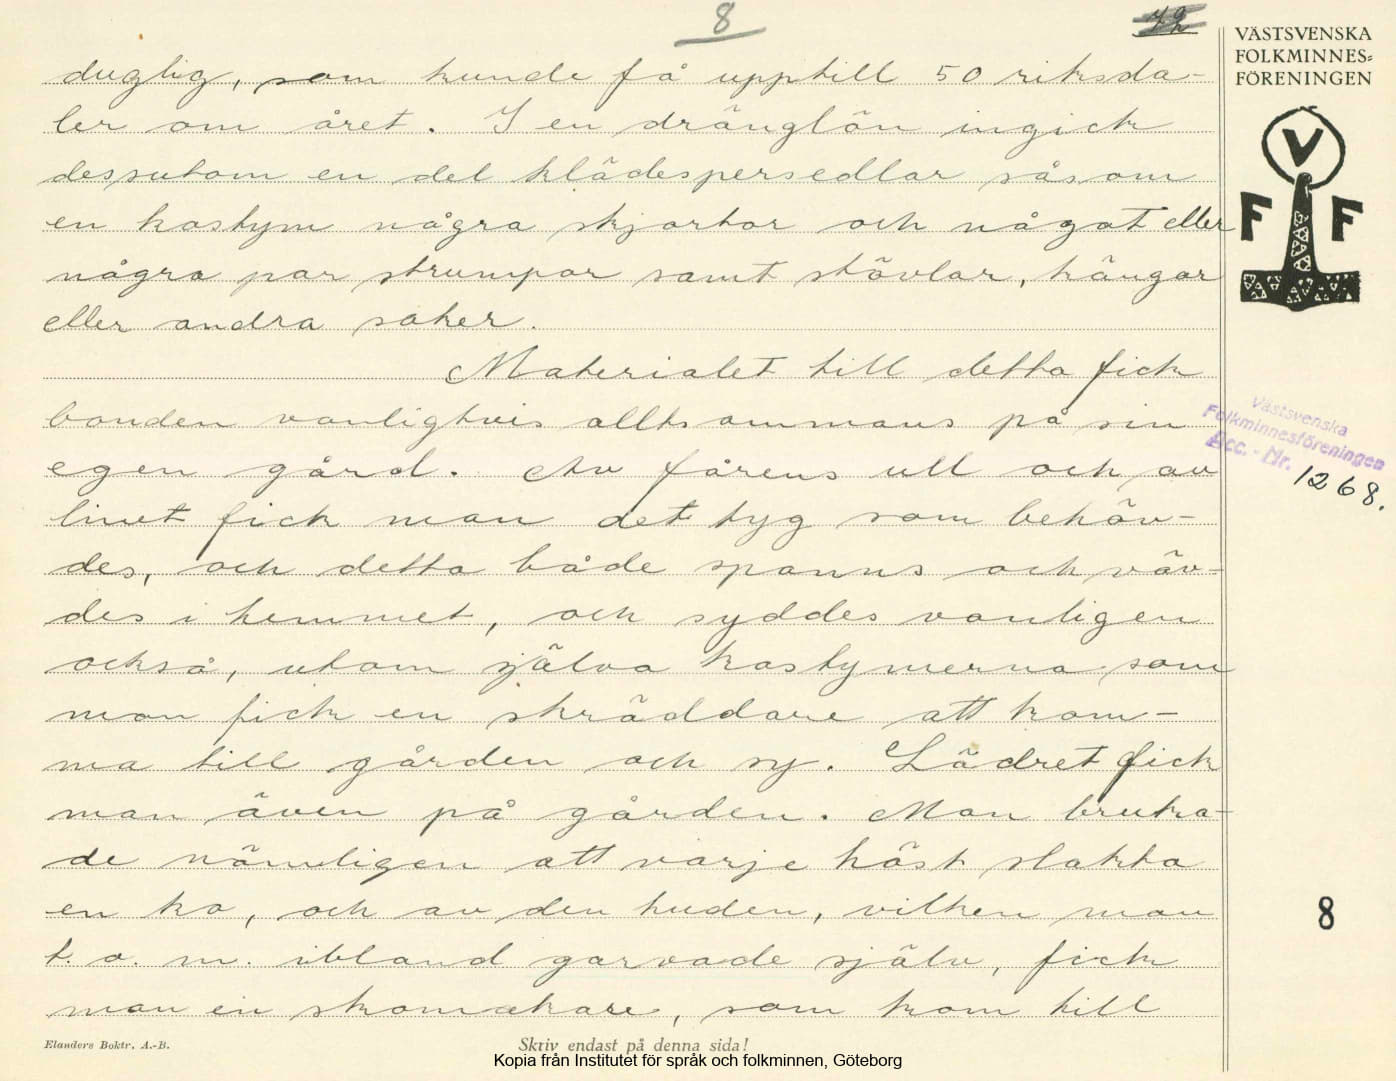 8
72
VÄSTSVENSKA
FOLKMINNES=
FÖRENINGEN
V
F F
duglig, som kunde få upptill 50 riksda-
ler om året. I en dränglön ingick
dessutom en del klädespersedlar såsom
en kostym några skjortor och något eller
några par strumpor samt stövlar, kängor
eller andra saker.
Materialet till detta fick
bonden vanligtvis alltsammans på sin
egen gård. Av fårens ull och av
linet fick man det tyg som behöv-
des, och detta både spanns och väv-
des i hemmet, och syddes vanligen
också, utom själva kostymerna som
man fick en skräddare att kom-
ma till gården och sy. Lädret fick
man även på gården. Man bruka-
de nämligen att varje höst slakta
en ko, och av den huden, vilken man
t. o. m. ibland garvade själv, fick
man en skomakare, som kom till
Västsvenska
Folkminnesföreningen
Acc. - Nr. 1268.
8
Elanders Boktr. A.-B.
Skriv endast på denna sida!
Kopia från Institutet för språk och folkminnen, Göteborg